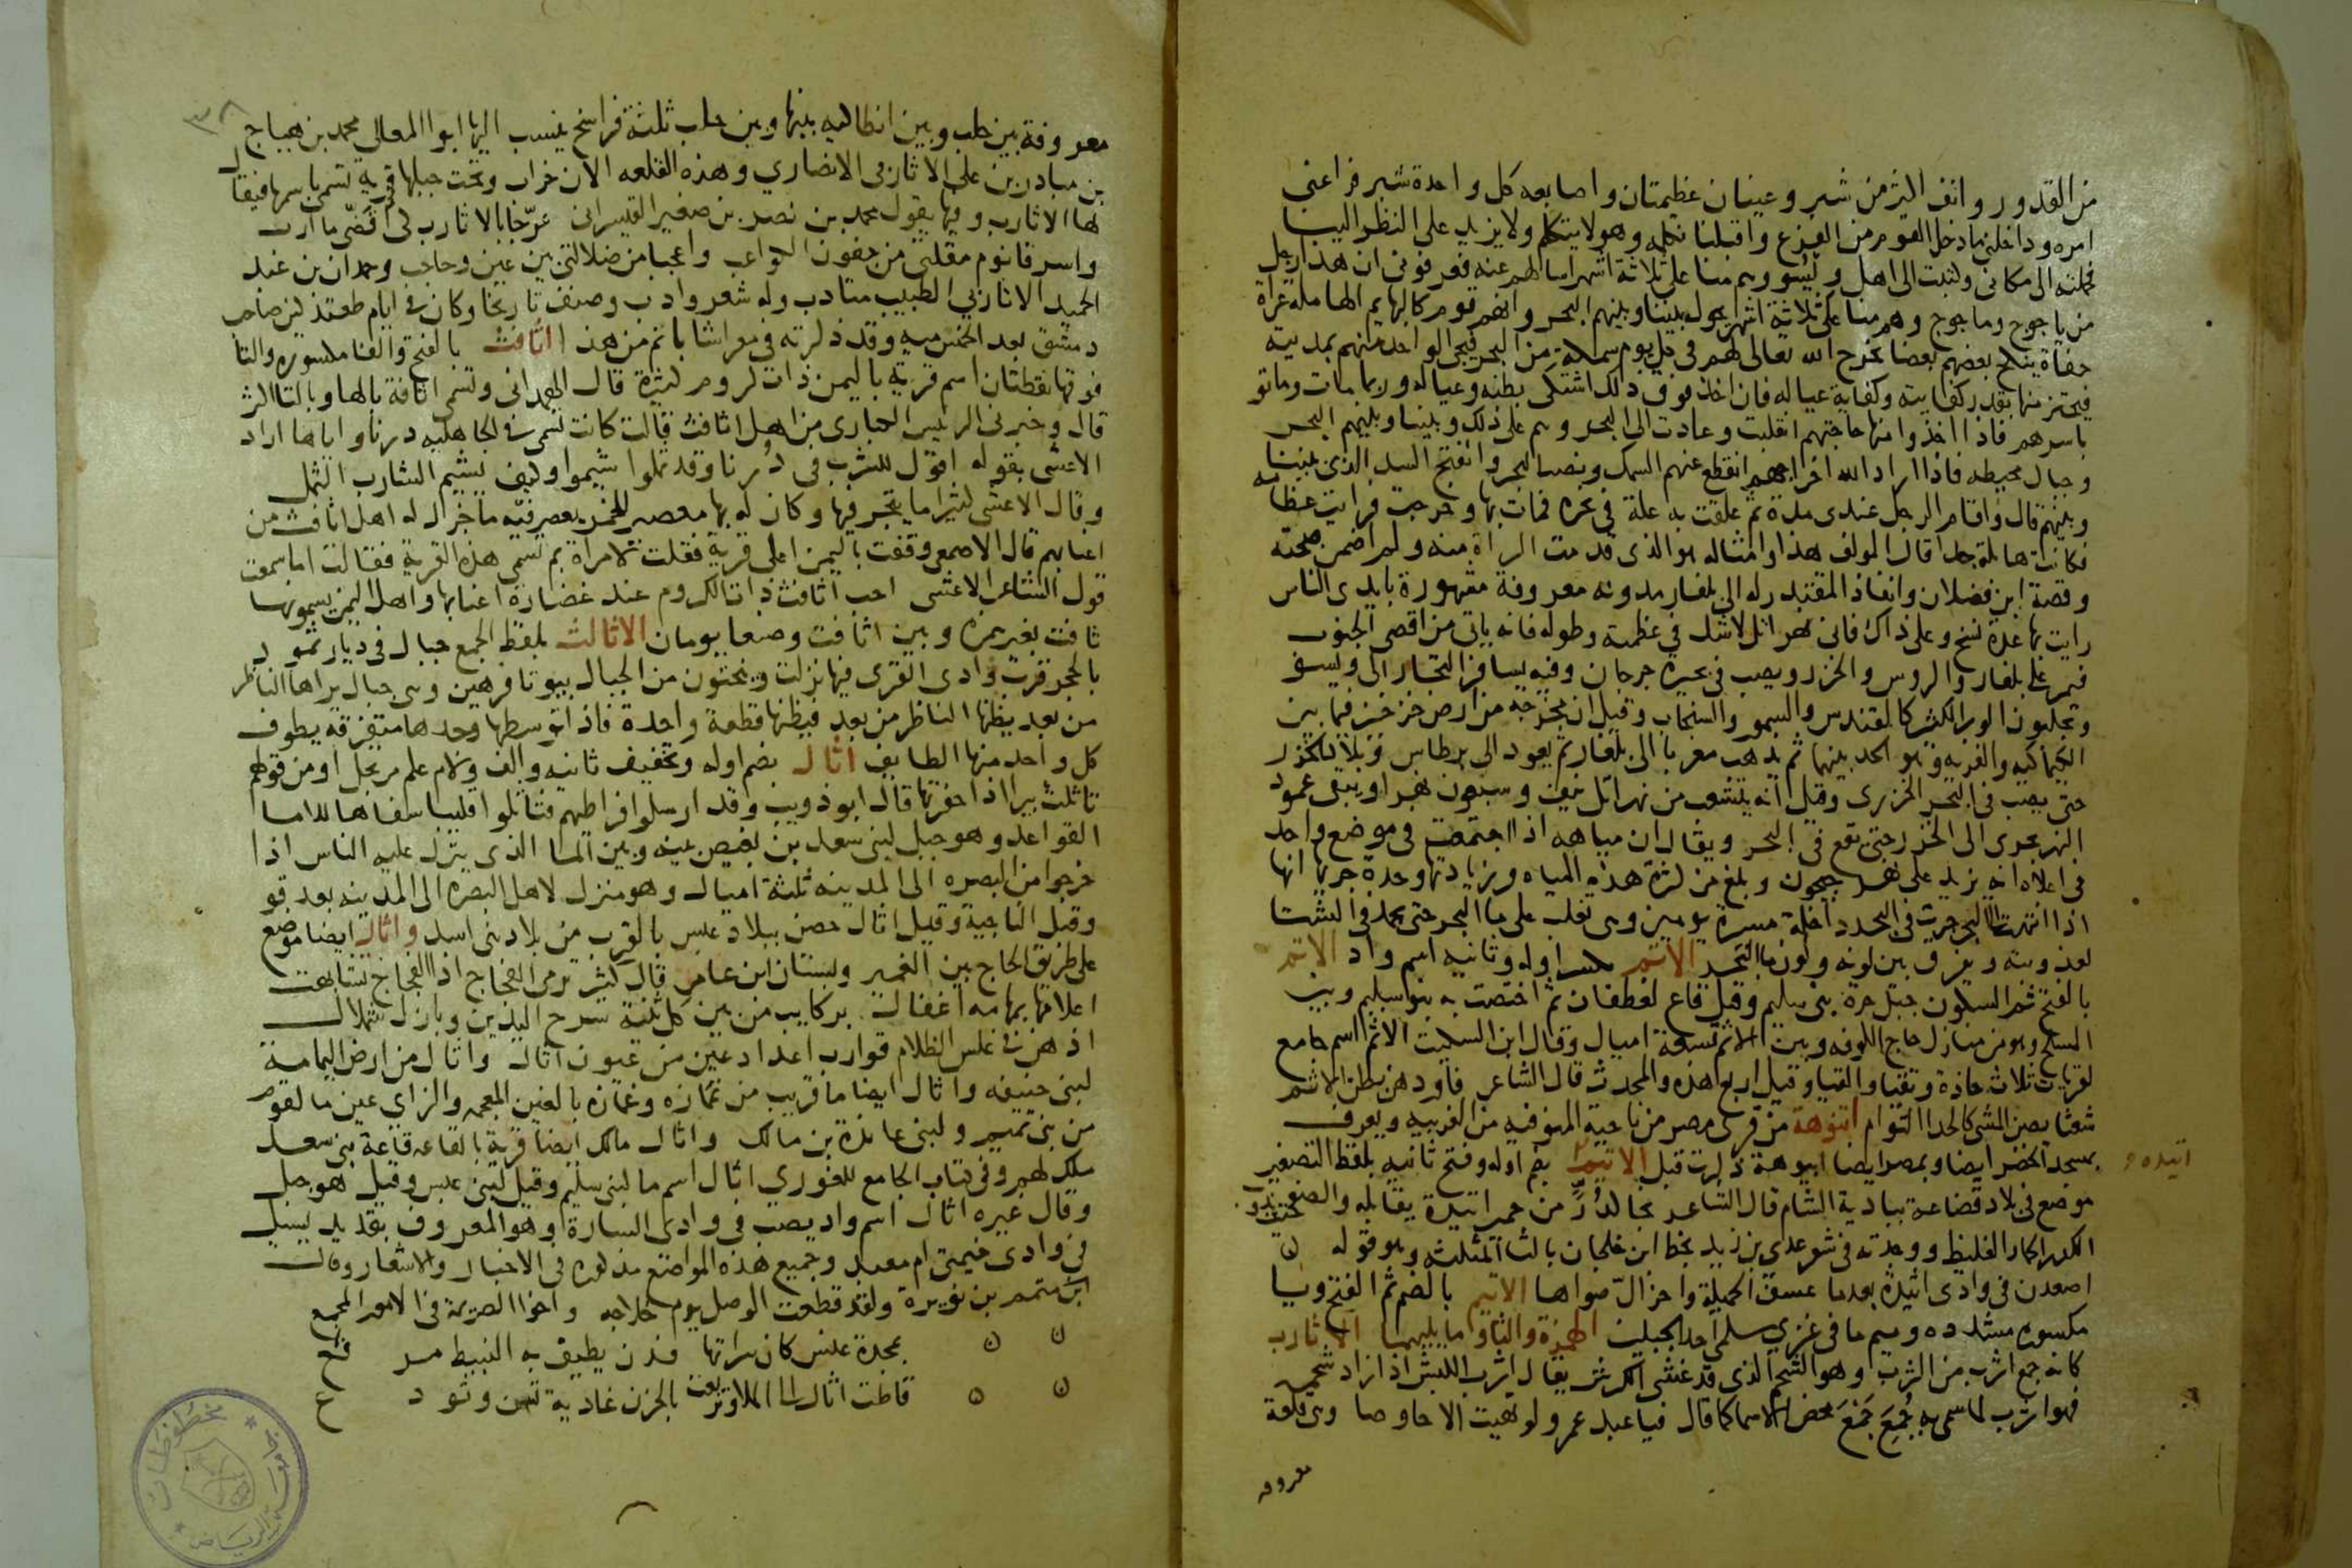 من القدور وانف اكثر من شبر وعينان عظيمتان واصابعه كل واحدة شبر فراعني
امره وداخلني ما دخل القوم من الفزع واقبلنا نكلمه وهو لا يتكلم ولا يزيد على النظر الينا
فحملته الى مكاني وكتبت الى اهل ويسو وهم منا على ثلاثة اشهر اسالهم عنه فعرفوني ان هذا رجل
من ياجوج وماجوج وهم منا على ثلاثة اشهر يحول بيننا وبينهم البحر وانهم قوم كالبهايم الهامله عراة
حفاة ينكح بعضهم بعضا يخرج الله تعالى لهم في كل يوم سمكة من البحر فيجي الواحد منهم بمدية
فيحتز منها بقدر كفايته وكفاية عياله فان اخذ فوق ذلك اشتكى بطنه وعياله وربما مات وماتو
باسرهم فاذا اخذوا منها حاجتهم انقلبت وعادت الى البحر وهم على ذلك وبيننا وبينهم البحر
وجبال محيطه فاذا اراد الله اخراجهم انقطع عنهم السمك ونضب البحر وانفتح السد الذي بيننا
وبينهم قال واقام الرجل عندي مدة ثم علقت به علة في نحره فمات بها وخرجت فرايت عظامه
فكانت هايلة جدا قال المولف هذا وامثاله هو الذي قدمت البراة منه ولم اضمن صحته
وقصة ابن فضلان وانفاذ المقتدر له الى بلغار مدونه معروفة مشهورة بايدي الناس
رايت بها عدة نسخ وعلى ذاك فاني نهر اتل لا شك في عظمه وطوله فانه ياتي من اقصى الجنوب
فيمر على بلغار والروس والخزر ويصب في بحيرة جرجان وفيه يسافر التجار الى ويسو
ويجلبون الوبر الكثير كالقندس والسمور والسنجاب وقيل ان مخرجه من ارض خرخيز فيما بين
الكيماكيه والغزيه وهو الحد بينهما ثم يذهب مغربا الى بلغار ثم يعود الى برطاس وبلاد الخزر
حتى يصب في البحر الخزري وقيل انه ينشعب من نهر اتل نيف وسبعون نهرا ويبقى عمود
النهر يجري الى الخزر حتى يقع في البحر ويقال ان مياهه اذا اجتمعت في موضع واحد
في اعلاه انه يزيد على نهر جيحون وبلغ من كثرة هذه المياه وزيادتها وحدة جريها انها
اذا انتهت الى البحر جرت في البحر داخلة مسيرة يومين وهي تغلب على ما البحر حتى يجمد في الشتا
لعذوبته ويفرق بين لونه ولون ما البحر الاتم بكسر اوله وثانيه اسم واد الاتم
بالفتح ثم السكون جبل حرة بني سليم وقيل قاع لغطفان ثم اختصت به بنو سليم وبين
المسلح وهو من منازل حاج الكوفه وبين الاتم تسعة اميال وقال ابن السكيت الاتم اسم جامع
لقريات ثلاث حاذة ونقيا والقيا وقيل اربع هذه والمحدث قال الشاعر فاوردهن بطن الاتم
شعثا يصن المشي كالحدا التوام اتنوهة من قرى مصر من ناحية المنوفيه من الغربيه ويعرف
بمسجد الخضر ايضا وبمصر ايضا ابيوهة ذكرت قبل الاتيدة بضم اوله وفتح ثانيه بلفظ التصغير
اتيده
موضع في بلاد قضاعة ببادية الشام قال الشاعر نجا كدر من حمير اتيدة يقابله والصفحتين
الكدر الحمار الغليظ ووجدته في شعر عدي بن زيد بخط ابن خلجان بالثا المثلثه وهو قوله
اصعدن في وادي اثيدة بعدما عسف الخميلة واحزال صواها الاتيم بالضم ثم الفتح ويا
مكسوره مشدده وميم ما في غربي سلمى احد الجبلين الهمزة والثا وما يليهما الاثارب
كانه جمع اثرب من الثرب وهو الشحم الذي قد غشي الكرش يقال اثرب الكبش اذا زاد شحمه
فهو اثرب لما سمي به جمع جمع محض الاسما كما قال فيا عبد عمرو لو نهيت الاحاوصا وهي قلعة
معروفه
٣٨
معروفة بين حلب وبين انطاكيه بينها وبين حلب ثلثة فراسخ ينسب اليها ابو المعالي محمد بن هياج
بن مبادر بن علي الاثاربي الانصاري وهذه القلعه الان خراب وتحت جبلها قرية تسمى باسمها فيقال
لها الاثارب وفيها يقول محمد بن نصر بن صغير القيسراني عرجا بالاثارب كي اقضي ماارب
واسرقا نوم مقلتي من جفون الكواعب واعجبا من ضلالتي بين عين وحاجب وحمدان بن عبد
الحميد الاثاربي الطبيب متادب وله شعر وادب وصنف تاريخا وكان في ايام طغتكين صاحب
دمشق بعد الخمس ميه وقد ذكرته في معر اشاباتم من هذا اثافت بالفتح والفا مكسوره والتا
فوقها نقطتان اسم قرية باليمن ذات كروم كثيرة قال الهمداني وتسمى اثافة بالها وبالتا اكثر
قال وخبرني الرئيس الكباري من اهل اثافت قال كانت تسمى في الجاهليه درنا واياها اراد
الاعشى بقوله اقول للشرب في درنا وقد ثملوا شيموا وكيف يشيم الشارب الثمل
وقال الاعشى كثيرا ما يتجر فيها وكان له بها معصر للخمر يعصر فيه ما اجزل له اهل اثافت من
اعنابهم قال الاصمعي وقفت باليمن على قرية فقلت لامراة بم تسمى هذه القرية فقالت اما سمعت
قول الشاعر الاعشى احب اثافت ذات الكروم عند غضارة اعنابها واهل اليمن يسمونها
ثافت بغير همزه وبين اثافت وصنعا يومان الاثالث بلفظ الجمع جبال في ديار ثمود
بالحجر قرب وادي القرى فيها نزلت وينحتون من الجبال بيوتا فرهين وهي جبال يراها الناظر
من بعد يظنها الناظر من بعد فيظنها قطعة واحدة فاذا توسطها وجدها متفرقه يطوف
كل واحد منها الطايف اثال بضم اوله وتخفيف ثانيه والف ولام علم مرتجل او من قولهم
تاثلت بيرا اذا حفرتها قال ابو ذويب وقد ارسلوا فراطهم فتاثلوا قليبا سفاها للاما
القواعد وهو جبل لبني سعد بن بغيض بينه وبين الما الذي ينزل عليه الناس اذا
خرجوا من البصره الى المدينه ثلثة اميال وهو منزل لاهل البصره الى المدينه بعد قو
وقبل الناجية وقيل اثال حصن ببلاد عبس بالقرب من بلاد بني اسد واثال ايضا موضع
على طريق الحاج بين الغمير وبستان ابن عامر قال كثير ترمي الفجاج اذا الفجاج تشابهت
اعلامها بمهامه اغفال بركايب من بين كل ثنية سرح اليدين وبازل شملال
اذ هن في غلس الظلام قوارب اعداد عين من عيون اثال واثال من ارض اليمامة
لبني حنيفه واثال ايضا ما قريب من غمازه وغمازه بالغين المعجمه والزاي عين ما لقوم
من بني تميم ولبني عايذة بن مالك واثال مالك ايضا قرية بالقاعه قاعة بني سعد
ملك لهم وفي كتاب الجامع للغوري اثال اسم ما لبني سليم وقيل لبني عبس وقيل هو جبل
وقال غيره اثال اسم واد يصب في وادي الستارة وهو المعروف بقديد يسيل
في وادي خيمتي ام معبد وجميع هذه المواضع مذكوره في الاخبار والاشعار وقال
ابن متمم بن نويرة ولقد قطعت الوصل يوم خلاجه واخو الصريمة في الامور المجمع
بمجدة عنس كان سراتها فدن يطيف به النبيط مر فع
قاظت اثال الى الملا وتربعت بالحزن غادية تسن وتود ع